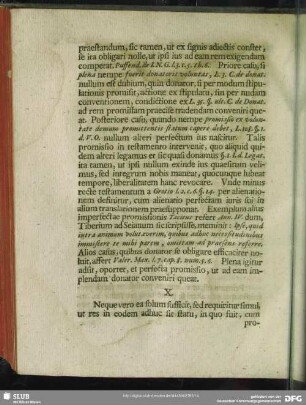 præstandum, sic tamen, ut ex signis adjectis constet,
se ita obligari nolle, ut ipsi ius ad eam rem exigendam
competat. Puffend. de I.N.G. l.3. c.5. §.6. Priore casu, si
plena nempe fuerit donantis voluntas, L. 3. C. de donat.
nullum est dubium, quin donator, si per modum stipulationis
promisit, actione ex stipulatu, sin per nudam
conventionem, condictione ex L. 35. §. ult. C. de Donat.
ad rem promissam præstandam conveniri queat.
Posteriore casu, quando nempe promissio ex voluntate
demum promittentis statum capere debet,
nullum alteri perfectum ius nascitur. Talis
promissio in testamento intervenit, quo aliquid quidem
alteri legamus et sic quasi donamus
ita tamen, ut ipsi nullum exinde ius quæsitum velimus,
sed integrum nobis maneat, quocunque lubeat
tempore, liberalitatem hanc revocare. Unde minus
recte testamentum a Grotio per alienationem
definitur, cum alienatio perfectam iuris sui in
alium translationem præsupponat. Exemplum alius
imperfectæ promissionis Tacitus refert Ann. IV. dum,
Tiberium ad Seianum sic scripsisse, meminit: Ipse, quid
intra animum volutaverim, quibus adhuc necessitudinibus
immiscere te mihi parem, omittam ad præsens referre.
Alios casus, quibus donator se obligare efficaciter nolit,
affert Plena igitur
adsit, oportet, et perfecta promissio, ut ad eam implendam
donator conveniri queat.
X.
Neque vero ea solum sufficit, sed requiritur simul,
ut res in eodem adhuc sit statu, in quo fuit, cum
pro-
SLUB